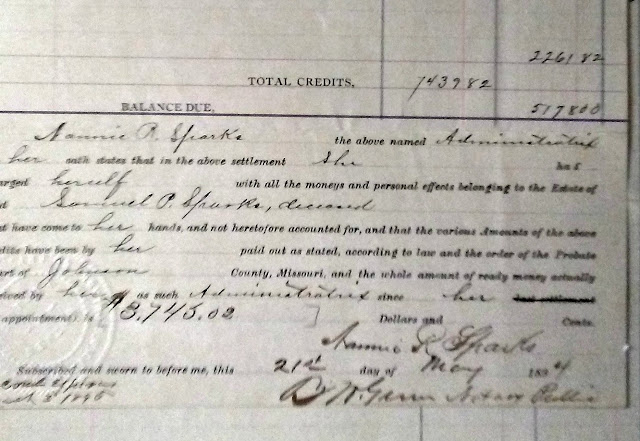 226182
TOTAL CREDITS, 743982
BALANCE DUE, 517800
Nannie R. Sparks the above named Administratrix
her oath states that in the above settlement She ha s
arged herself with all the moneys and personal effects belonging to the Estate of
Samuel P. Sparks, deceased
t have come to her hands, and not heretofore accounted for, and that the various Amounts of the above
dits have been by her paid out as stated, according to law and the order of the Probate
urt of Johnson County, Missouri, and the whole amount of ready money actually
eived by her as such Administratrix since her last settlement
appointment) is $3,745.02 Dollars and Cents.
Nannie R Sparks
Subscribed and sworn to before me, this 21st day of May 1894
Notary Public